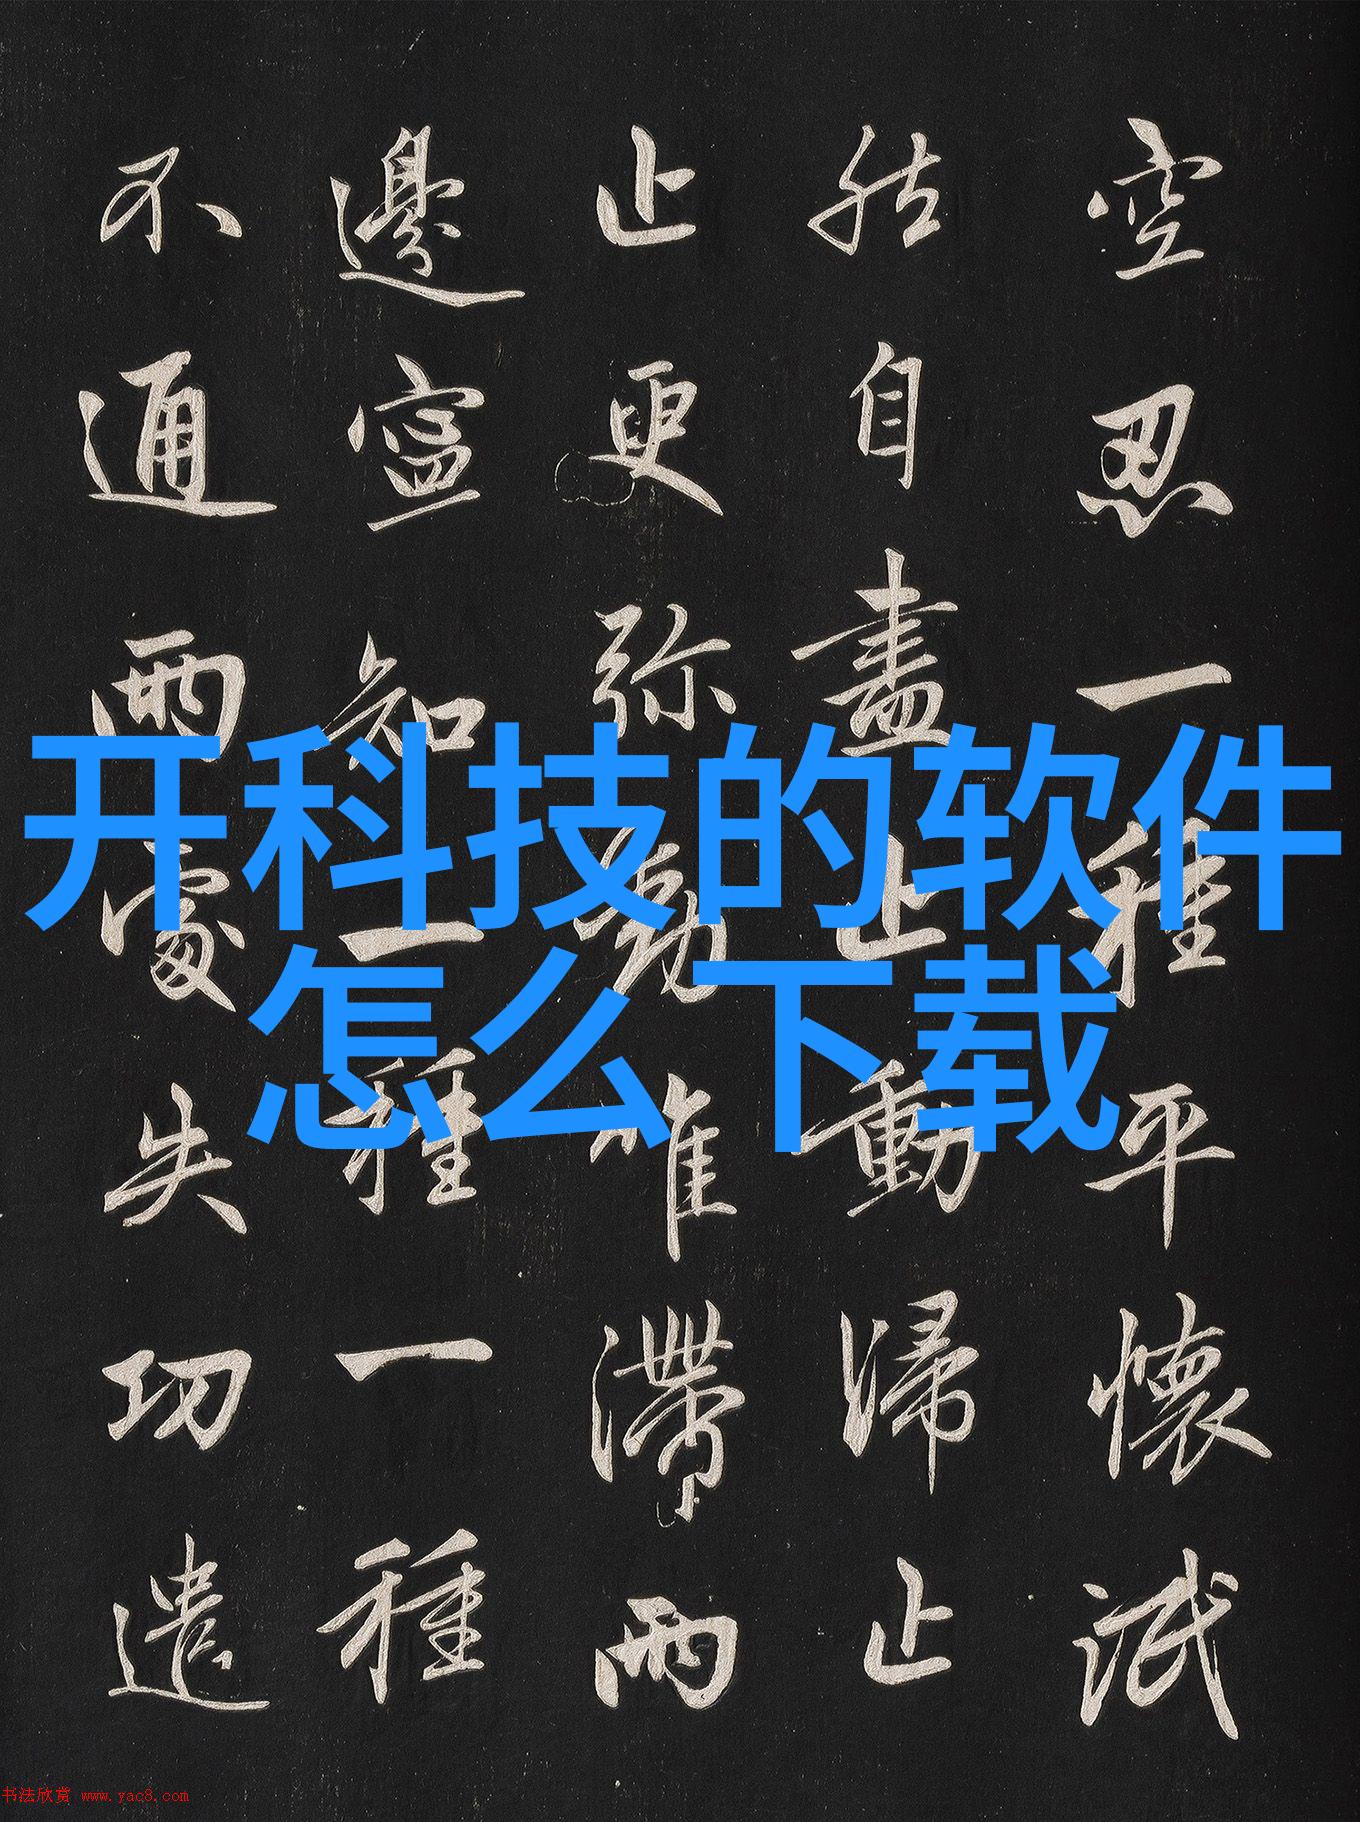 空忍一種平懷泯
然自盡止動歸止
止更弥動唯滯兩
邊寧知一種一種
不通兩處失功遣
开科技的软件
怎么下载
书法欣赏 www.yac8.com